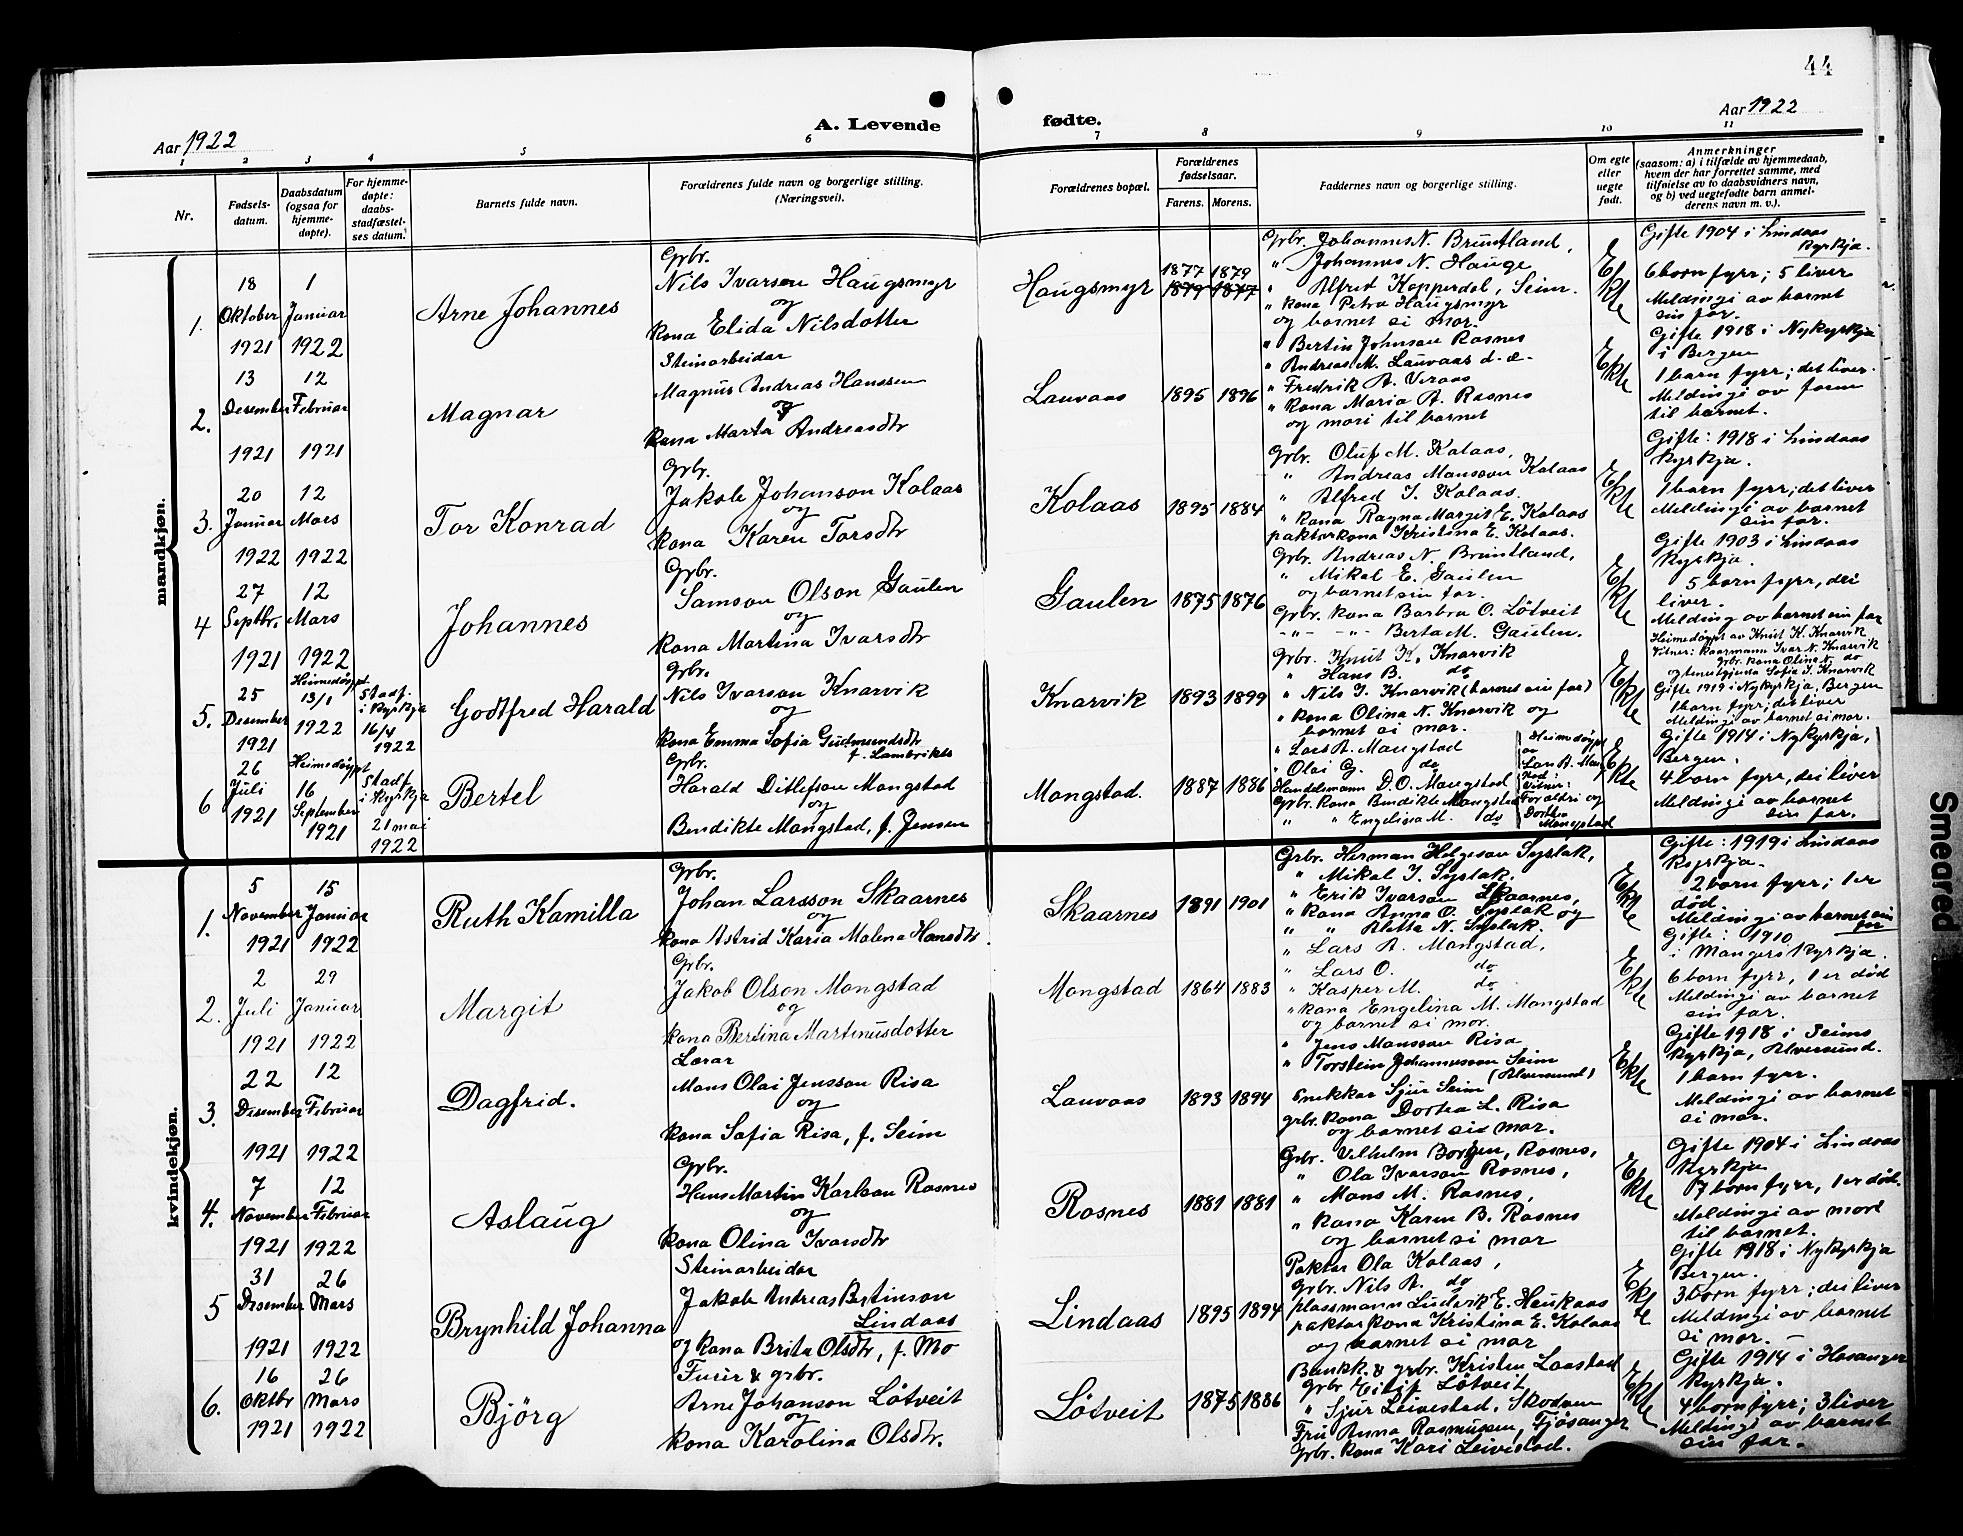 44
Aar 1922
A. Levende
fødte.
Aar 1922
1 2 3 4 5 6 7 8 9 10 11
Nr.
Fødsels-
datum.
Daabsdatum
(ogsaa for
hjemme-
døpte).
For hjemme-
døpte:
daabs-
stadfæstel-
ses datum.
Barnets fulde navn.
Forældrenes fulde navn og borgerlige stilling.
(Næringsvei).
Forældrenes bopæl.
Forældrenes
fødselsaar.
Farens. Morens.
Faddernes navn og borgerlige stilling.
Om egte
eller
uegte
født.
Anmerkninger
(saasom: a) i tilfælde av hjemmedaab,
hvem der har forrettet samme, med
tilføielse av to daabsvidners navn,
og b) ved uegtefødte barn anmel-
derens navn m. v.).
mandkjøn.
1.
18
Oktober
1921
1
Januar
1922
Arne Johannes
Grbr.
Nils Ivarson Haugsmyr
og
kona Elida Nilsdotter
Haugsmyr
1877 1879
1879 1877
Grbr. Johannes N. Bruntland,
" Johannes N. Hauge
" Alfred Kopperdal, Seim.
" kona Petra Haugsmyr
og barnet si mor.
Ekte
Gifte 1904 i Lindaas
Kyrkja.
6 born fyrr; 5 liver
Meldingi av barnet
sin far.
2.
13
Desember
1921
12
Februar
1921
Magnar
Steinarbeidar
Magnus Andreas Hanssen
og
kona Marta Andreasdtr
Lauvaas
1895 1896
" Bertin Johnson Rosnes
" Andreas M. Lauvaas d. e.
" Fredrik A. Veraas
" kona Maria A. Rosnes
og mori til barnet
Ekte
Gifte 1918 i Nykyrkja
i Bergen
1 barn fyrr; det liver.
Meldingi av faren
til barnet.
3.
20
Januar
1922
12
Mars
1922
Tor Konrad
Grbr.
Jakob Johanson Kolaas
og
kona Karen Torsdtr
Kolaas
1895 1884
Grbr. Oluf M. Kolaas,
" Andreas Mansson Kolaas
" Alfred J. Kolaas.
" kona Ragna Margit E. Kolaas
paktarkona Kristina E. Kolaas.
Ekte
Gifte: 1918 i Lindaas
Kyrkja.
1 barn fyrr; det liver
Meldingi av barnet
sin far.
4
27
Septbr.
1921
12
Mars
1922
Johannes
Grbr.
Samson Olson Gaulen
og
kona Martina Ivarsdtr
Gaulen
1875 1876
Grbr. Andreas N. Bruntland,
" Mikal E. Gaulen
og barnet sin far.
Grbr. kona Barbra O. Løtveit
-"- -"- Berta M. Gaulen.
Ekte
Gifte 1903 i Lindaas
Kyrkja.
5 born fyrr, dei
liver.
Melding av barnet sin far
5.
25
Desember
1921
Heimedøypt
13/1
1922
Stadf.
i Kyrkja
16/4
1922
Godtfred Harald
Grbr.
Nils Ivarson Knarvik
og
kona Emma Sofia Gudmundsdtr
f. Lambrikts
Knarvik
1893 1899
Grbr. Knut K. Knarvik
" Hans B. do
" Nils I. Knarvik (barnet sin far)
" kona Olina N. Knarvik og
barnet si mor.
Ekte
Heimedøypt av Knut K. Knarvik
Vitner: Kaarmann Ivar N. Knarvik
Grbr. kona Olina N. do
og tenestgjenta Sofia I. Knarvik
Gifte 1919 i Nykyrkja, Bergen
1 barn fyrr; det liver
Meldingi av barnet si mor.
6
26
Juli
1921
Heimedøypt
16
September
1921
Stadf.
i Kyrkja
21 mai
1922
Bertel
Grbr.
Harald Ditlefson Mongstad
og
Bendikte Mongstad, f. Jensen
Mongstad.
1887 1886
" Lars A. Mongstad
" Olai G. do
Handelsmann D. O. Mongstad
Grbr. kona Bendikte Mongstad
" " Engelina M. do
Heimedøypt
av
Lars A. Mong
stad:
Vitner:
Foraldri og
Dorthea
Mongstad
Ekte
Gifte 1914 i Nykyrkja,
Bergen.
4 born fyrr, dei liver
Meldingi av barnet
sin far.
kvindekjøn.
1.
5
November
1921
15
Januar
1922
Ruth Kamilla
Grbr.
Johan Larsson Skaarnes
og
kona Astrid Karia Malena Hansdtr.
Skaarnes
1891 1901
Grbr. Herman Helgeson Syslak,
" Mikal J. Syslak,
" Erik Ivarson Skaarnes,
" kona Anna O. Syslak og
" " Aletta N. Syslak.
Ekte
Gifte: 1919 i Lindaas
Kyrkja.
2 born fyrr; 1 er
død.
Meldingi av barnet sin
far
2.
2
Juli
1921
29
Januar
1922
Margit
Grbr.
Jakob Olson Mongstad
og
kona Bertina Martinusdotter
Mongstad
1864 1883
" Lars A. Mongstad,
" Lars O. do
" Kasper M. do
" kona Engelina M. Mongstad
og barnet si mor.
Ekte
Gifte: 1910
i Mangers Kyrkja.
6 born fyrr, 1 er død
Meldingi av barnet
sin far.
3.
22
Desember
1921
12
Februar
1922
Dagfrid.
Lærar
Mons Olai Jensson Risa
og
kona Sofia Risa, f. Seim
Lauvaas
1893 1894
" Jens Monsson Risa
" Torstein Johannesson Seim
(Alversund)
Snekkar Sjur Seim
grbr. kona Dortea L. Risa
og barnet si mor.
Ekte
Gifte 1918 i Seims
Kyrkja, Alversund.
1 barn fyrr.
Meldingi av barnet
si mor.
4.
7
November
1921
12
Februar
1922
Aslaug
Grbr.
Hans Martin Karlson Rosnes
og
kona Olina Ivarsdtr
Rosnes
1881 1881
Grbr. Vilhelm Borgen, Rosnes,
" Ola Ivarson Rosnes,
" Mons M. Rosnes,
" kona Karen B. Rosnes
og barnet si mor
Ekte
Gifte 1904 i Lindaas
Kyrkja
7 born fyrr, 1 er død.
Meldingi av mori
til barnet.
5
31
Desember
1921
26
Mars
1922
Brynhild Johanna
Steinarbeidar
Jakob Andreas Bertinson
Lindaas
og kona Brita Olsdtr, f. Mo
Lindaas
1895 1894
Paktar Ola Kolaas,
Grbr. Nils A. do
plassmann Ludvik E. Haukaas
paktarkona Kristina E. Kolaas
og barnet si mor
Ekte
Gifte 1918 i Nykyrkja
Bergen.
3 born fyrr; dei liver
Meldingi av barnet
si mor. –
6.
16
Oktbr
1921
26
Mars
1922
Bjørg
Furer & grbr.
Arne Johanson Løtveit
og
kona Karolina Olsdtr.
Løtveit
1875 1886
Bankk. & grbr. Kristen Loastad
Grbr Eilif Løtveit,
" Sjur Leivestad, Skodven
Fru Anna Rasmussen, Fjøsanger
Grbr. kona Kari Leivestad.
Ekte
Gifte 1914 i Hosanger
Kyrkja.
4 born fyrr; 3 liver
Meldingi av barnet
sin far.
Smeared